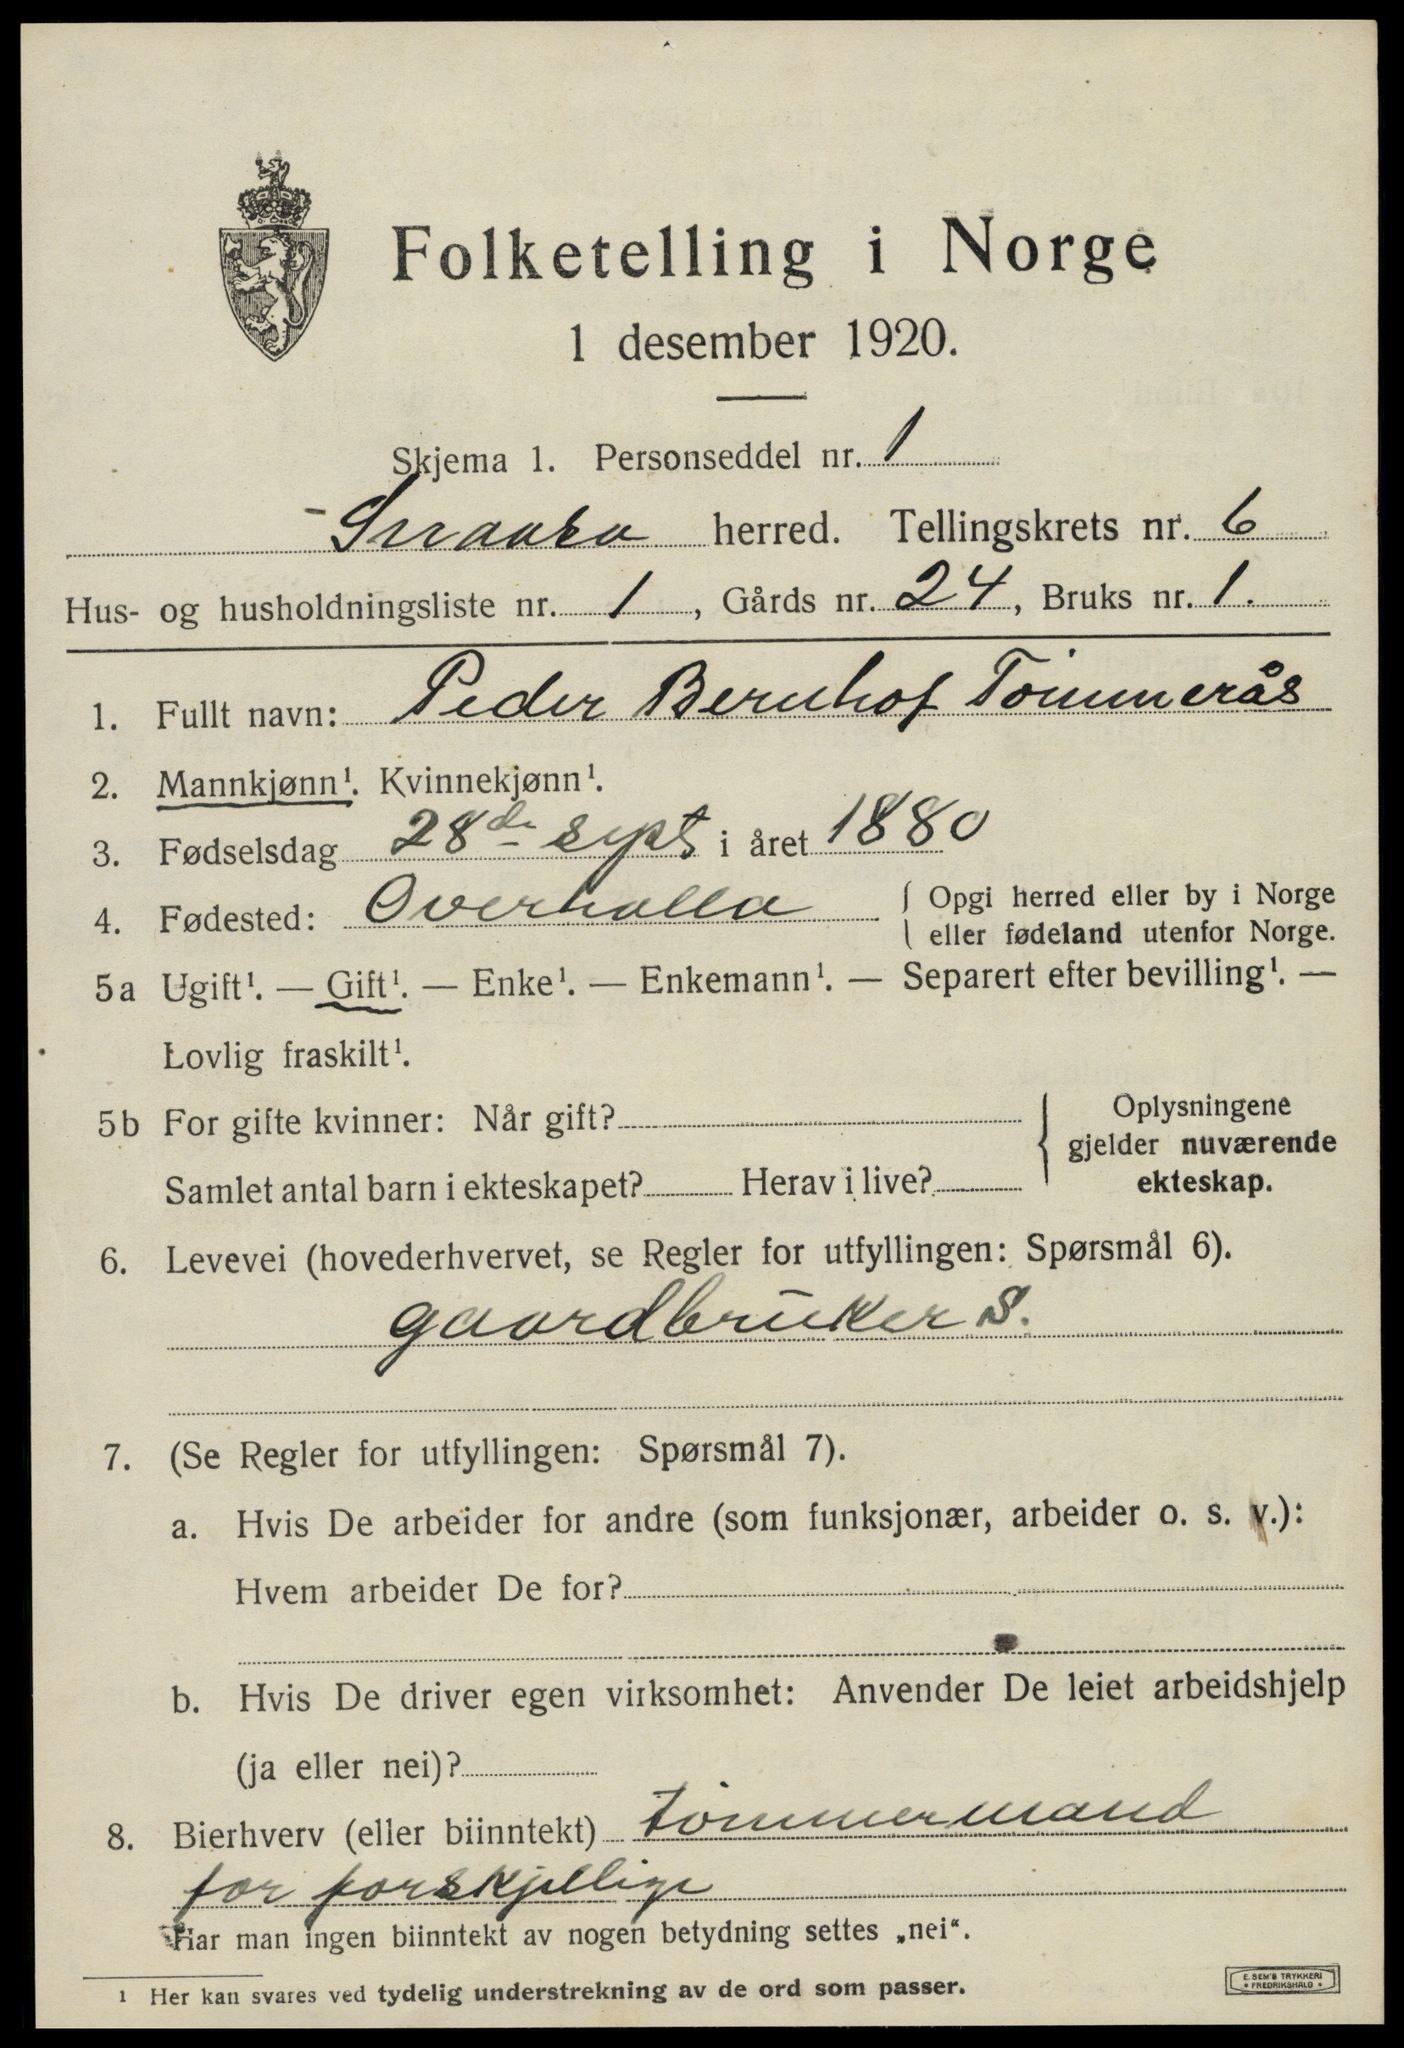 Folketelling i Norge
1 desember 1920.
Skjema 1. Personseddel nr. 1
Snaasa herred. Tellingskrets nr. 6
Hus- og husholdningsliste nr. 1, Gårds nr. 24, Bruks nr. 1.
1. Fullt navn: Peder Bernhof Tömmerås
2. Mannkjønn¹. Kvinnekjønn¹.
3. Fødselsdag 28de sept i året 1880
4. Fødested: Overhalla { Opgi herred eller by i Norge
eller fødeland utenfor Norge.
5a Ugift¹. — Gift¹. — Enke¹. — Enkemann¹. — Separert efter bevilling¹. —
Lovlig fraskilt¹.
5b For gifte kvinner: Når gift?
Samlet antal barn i ekteskapet? Herav i live?
Oplysningene
gjelder nuværende
ekteskap.
6. Levevei (hovederhvervet, se Regler for utfyllingen: Spørsmål 6).
gaardbruker S.
7. (Se Regler for utfyllingen: Spørsmål 7).
a. Hvis De arbeider for andre (som funksjonær, arbeider o. s. v.):
Hvem arbeider De for?
b. Hvis De driver egen virksomhet: Anvender De leiet arbeidshjelp
(ja eller nei)?
8. Bierhverv (eller biinntekt) tömmermand
for forskjellige
Har man ingen biinntekt av nogen betydning settes „nei“.
1 Her kan svares ved tydelig understrekning av de ord som passer.
E. SEM'S TRYKKERI
• FREDRIKSHALD •